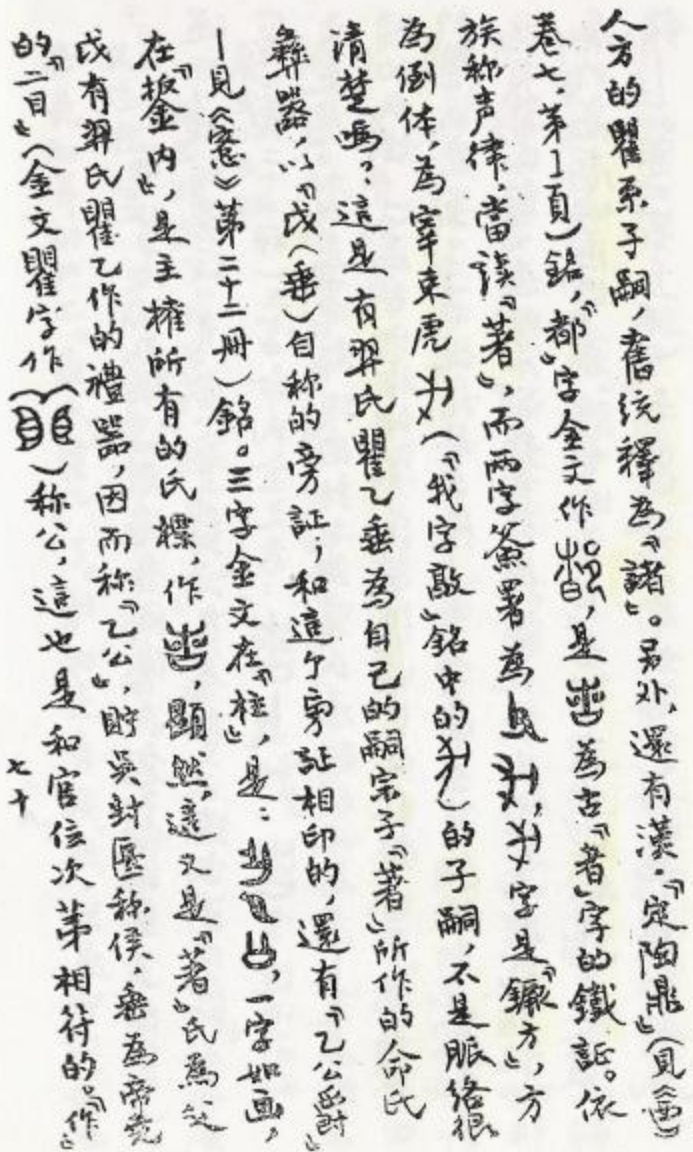 人方的瞿系子嗣，舊统釋為『諸』。另外，還有漢·『定陶鼎』（見《》
卷七、第1頁）銘，『都』字金文作，是為古『者』字的鐵証。依
族称声律，當读『著』，而兩字簽署為，字是『鐝方』，方
為倒体，為宰束虎（『我字敲』銘中的）的子嗣，不是脈络很
清楚嗎？這是有羿氏瞿乙垂為自己的嗣宗子『著』所作的命氏
彝器，以『戉（垂）自称的旁証；和這个旁証相印的，還有『乙公爵』
—見《愙》第二十二册）銘。三字金文在『柱』，是：，一字如画，
在『扳金内』，是主權所有的氏標，作，顯然，這又是『著』氏為父
戉有羿氏瞿乙作的禮器，因而称『乙公』，貯吳封匽称侯，垂為帝尧
的『二目』（金文瞿字作）称公，這也是和官位次第相符的。『作』
七十